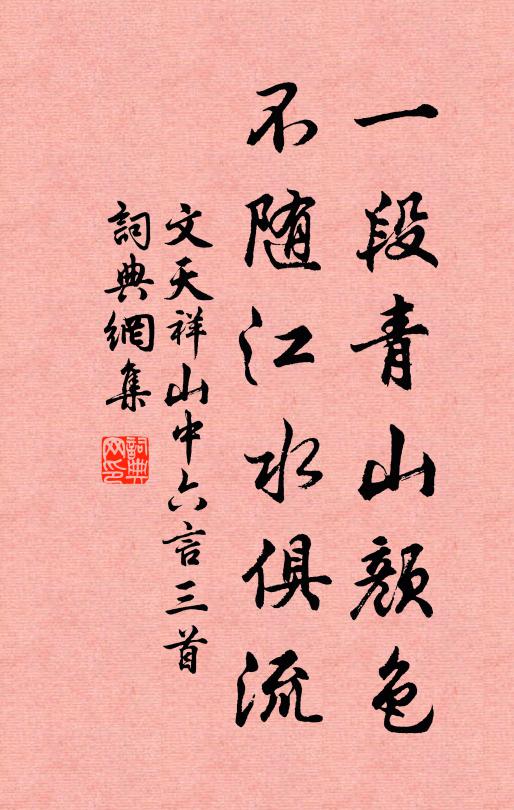 一段青山顏色
不随江水俱流
文天祥山中六言三首
詞典網集
詞典網印